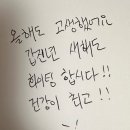 올해도 고생했어요
갑진년 새해도
화이팅 합시다!!
건강이 최고!!